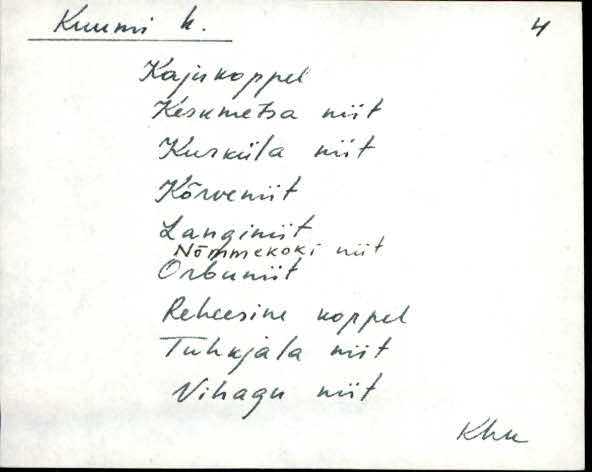 Kuumi k.
4
Kajukoppel
Keskmetsa niit
Kurküla niit
Kõrveniit
Langiniit
Nõmmekoki niit
Orbuniit
Reheesine koppel
Tuhkjala niit
Vihagu niit
Khn